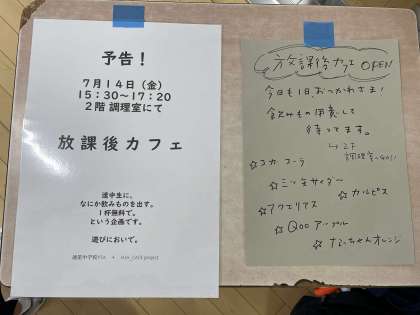 予告！
7月14日（金）
15:30～17:20
2階 調理室にて
放課後カフェ
道中生に、
なにか飲みものを出す。
1杯無料で。
という企画です。
遊びにおいで。
放課後カフェ OPEN
今日も1日おつかれさま！
飲みもの用意して
待ってます。
↳ 2F
調理室へGO!!
☆コカ コーラ
☆三ツ矢サイダー
☆カルピス
☆アクエリアス
☆Qoo アップル
☆なっちゃんオレンジ